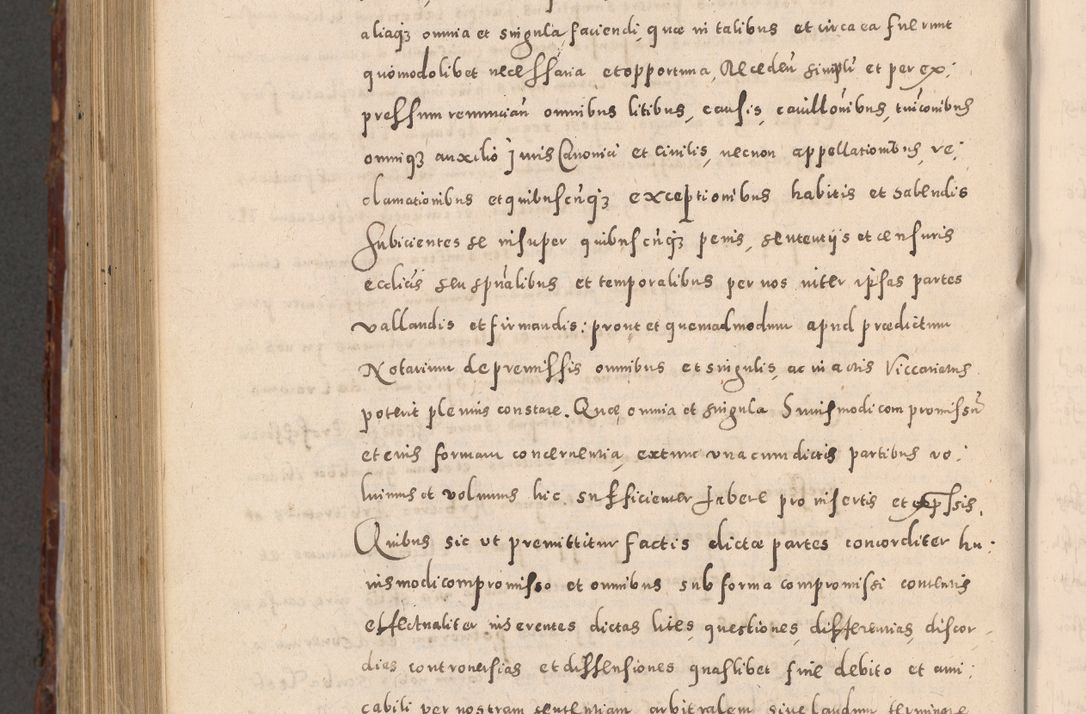 aliaq3 omnia et singula, faciendi, quæ in talibus et circa ea fuerunt
quomodolibet necessaria et opportuna, Recedeñ simplr̃ et per ex:
pressum renuncian̄ omnibus litibus, causis, cauillōnibus, tuic̄onibus
omniq3 auxilio Juris Canonici et Ciuilis, necnon appellationibus, re:
clamationibus et quibuscūq3 exceptionibus habitis et habendis
subicientes se insuper quibuscūq3 penis, sententijs et censuris
ecclicis seu spūalibus et temporalibus per nos inter ipsas partes
vallandis et firmandis: prout et quemadmodum apud prædictum
Notarium de premissis omnibus et singulis, ac in actis Viccariatus
poterit plenius constare. Quæ omnia et singula huiusmodi compromissū
et eius formam concernentia, extunc una cum dictis partibus uo:
luimus et volumus hic sufficienter habere pro insertis et exp̄ssis.
Quibus sic ut premittitur factis dictæ partes concorditer hu:
iusmodi compromisso et omnibus sub forma compromissi contentis
effectualiter inherentes dictas lites, questiones, differentias, discor
dias controuersias et dissensiones quaslibet fine debito et ami:
cabili per nostram sententiam arbitralem siue laudum terminare